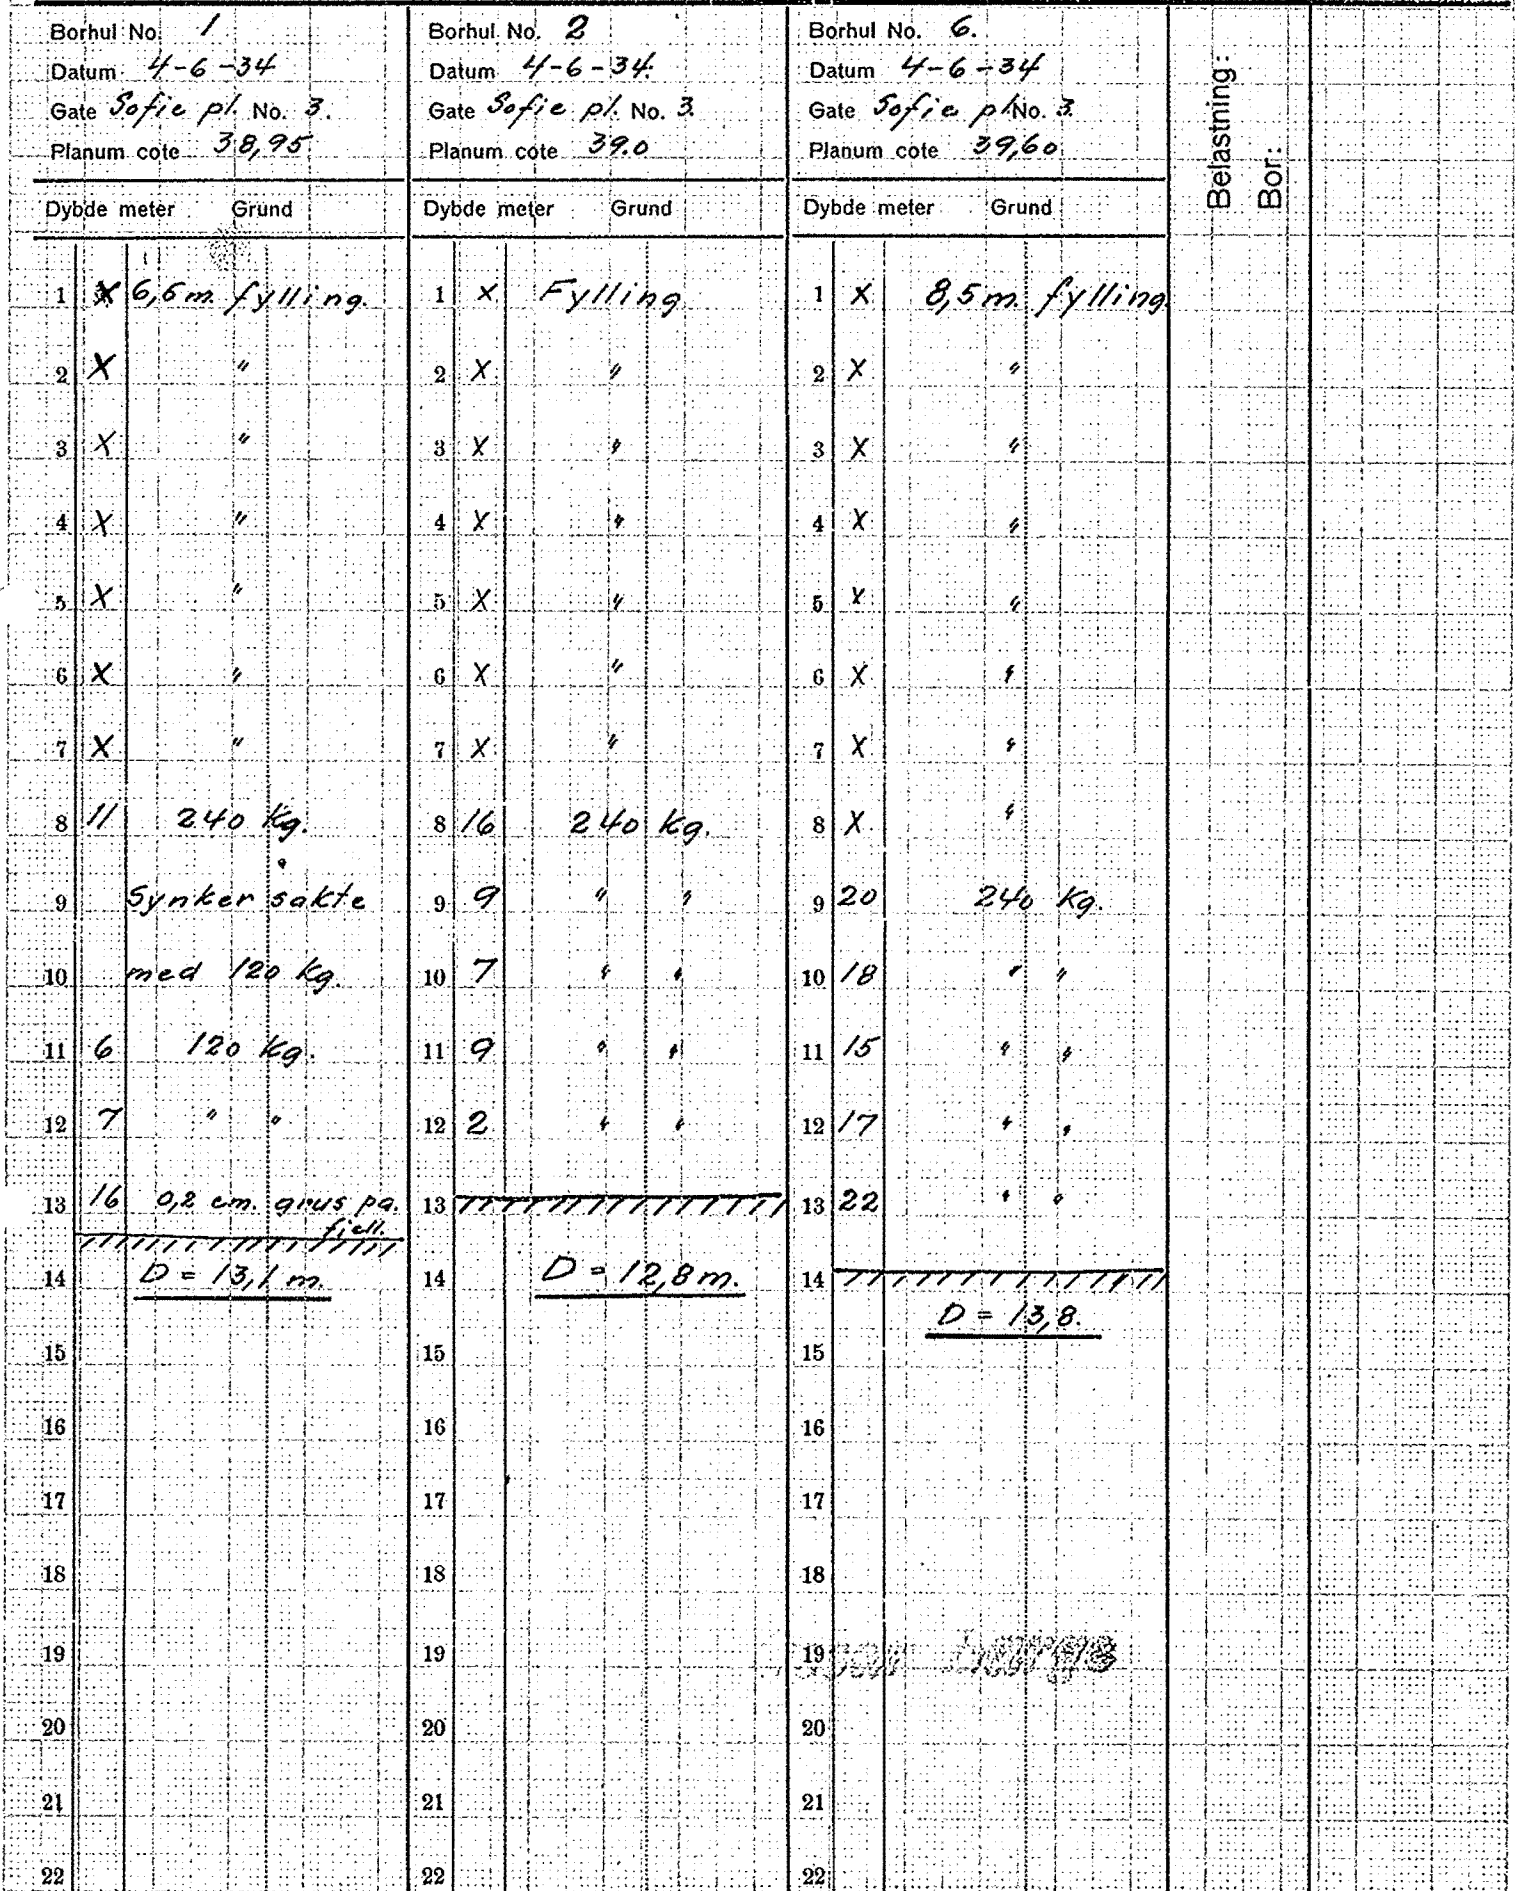 Borhul No. 1
Datum 4-6-34
Gate Sofie pl. No. 3.
Planum cote 38,95
Dybde meter Grund
1 X 6,6 m. fylling.
2 X "
3 X "
4 X "
5 X "
6 X "
7 X "
8 11 240 kg.
9 Synker sakte
10 med 120 kg.
11 6 120 kg.
12 7 " "
13 16 0,2 cm. grus pa.
fjell.
14 D = 13,1 m.
15
16
17
18
19
20
21
22
Borhul No. 2
Datum 4-6-34.
Gate Sofie pl. No. 3.
Planum cote 39.0
Dybde meter Grund
1 X Fylling
2 X "
3 X "
4 X "
5 X "
6 X "
7 X "
8 16 240 kg.
9 9 " "
10 7 " "
11 9 " "
12 2 " "
13
14 D = 12,8 m.
15
16
17
18
19
20
21
22
Borhul No. 6.
Datum 4-6-34
Gate Sofie pl No. 3.
Planum cote 39,60
Dybde meter Grund
1 X 8,5 m. fylling.
2 X "
3 X "
4 X "
5 X "
6 X "
7 X "
8 X "
9 20 240 kg.
10 18 " "
11 15 " "
12 17 " "
13 22 " "
14
D = 13,8.
15
16
17
18
19
20
21
22
Belastning:
Bor: